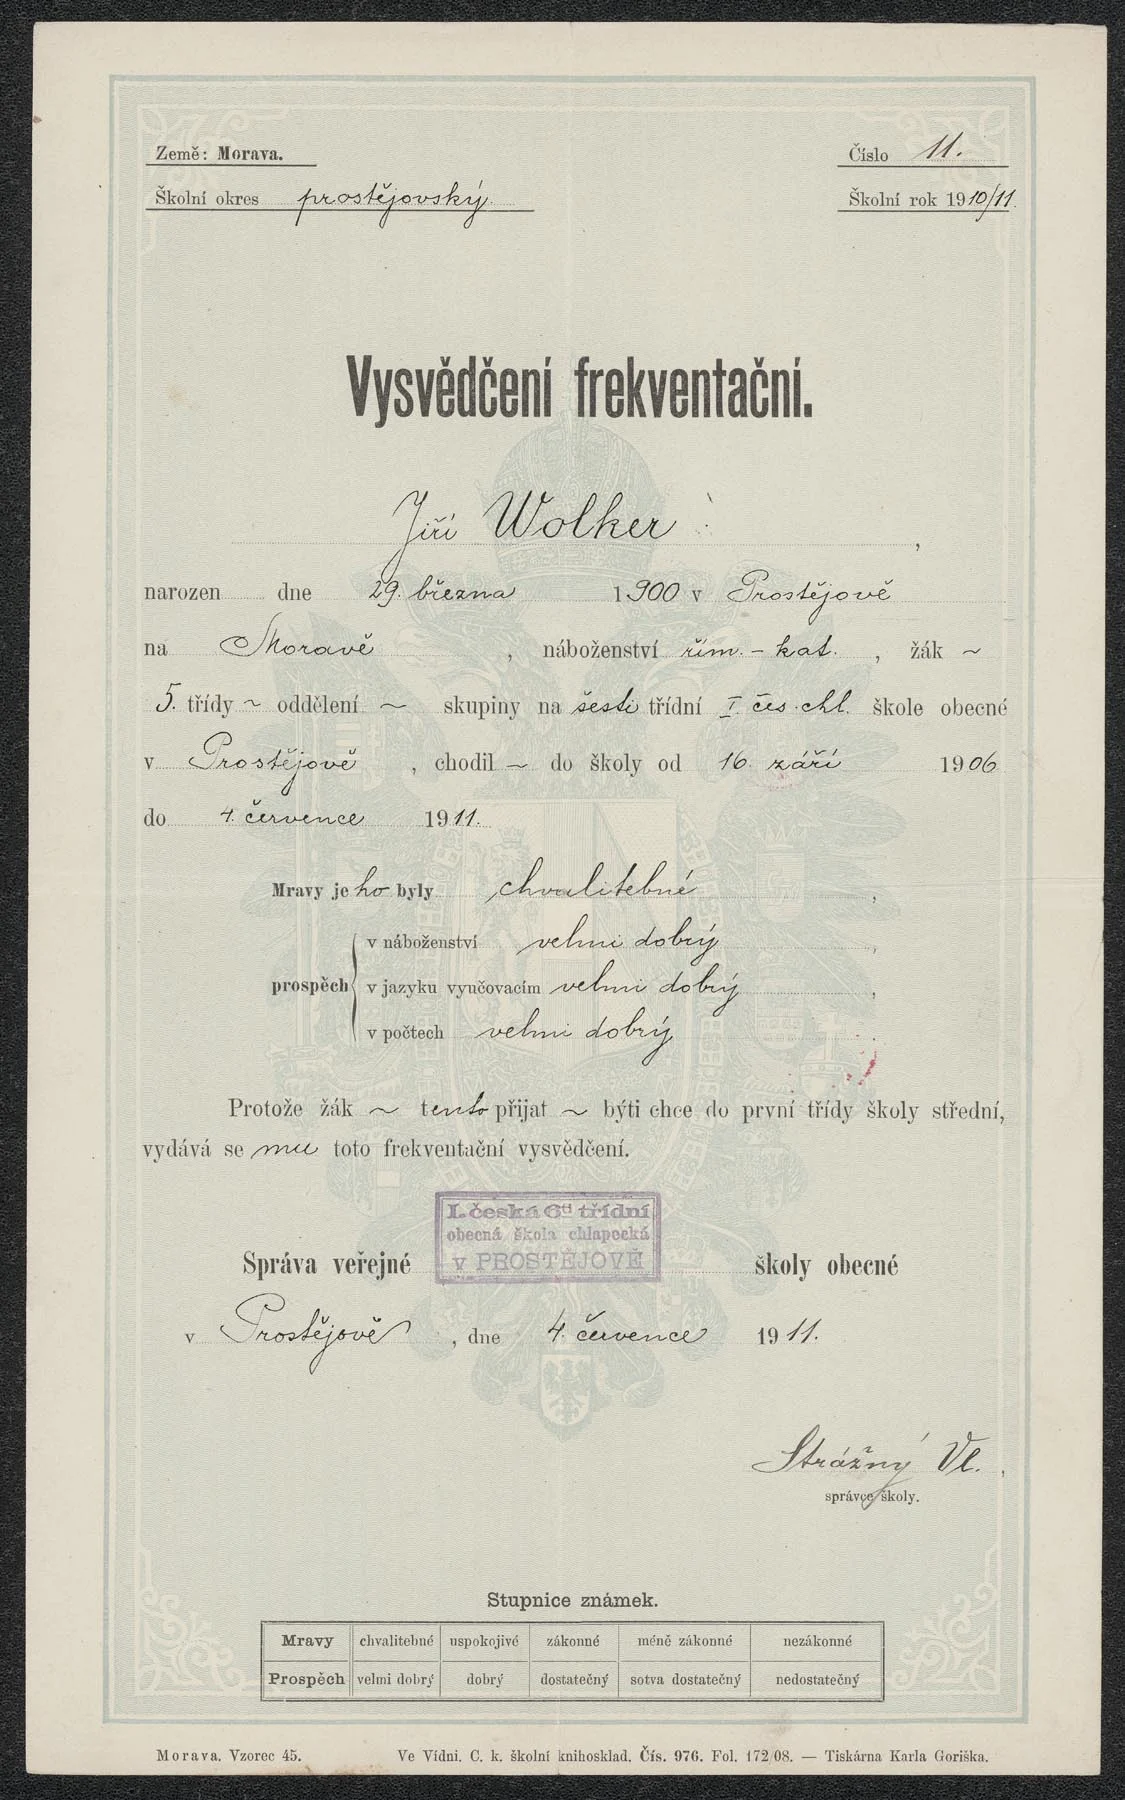 Země: Morava.
Číslo 11.
Školní okres prostějovský.
Školní rok 1910/11.
Vysvědčení frekventační.
Jiří Wolker,
narozen dne 29. března 1900 v Prostějově
na Moravě, náboženství řím.-kat., žák ~
5. třídy ~ oddělení ~ skupiny na šesti třídní I. čes. chl. škole obecné
v Prostějově, chodil ~ do školy od 16. září 1906
do 4. července 1911.
Mravy jeho byly chvalitebné,
v náboženství velmi dobrý,
prospěch v jazyku vyučovacím velmi dobrý,
v počtech velmi dobrý
Protože žák ~ tento přijat ~ býti chce do první třídy školy střední,
vydává se mu toto frekventační vysvědčení.
I. česká 6ti třídní
obecná škola chlapecká
v PROSTĚJOVĚ
Správa veřejné školy obecné
v Prostějově, dne 4. července 1911.
Strážný Vl.,
správce školy.
Stupnice známek.
Mravy chvalitebné uspokojivé zákonné méně zákonné nezákonné
Prospěch velmi dobrý dobrý dostatečný sotva dostatečný nedostatečný
Morava. Vzorec 45. Ve Vídni. C. k. školní knihosklad. Čís. 976. Fol. 172/08. — Tiskárna Karla Goriška.